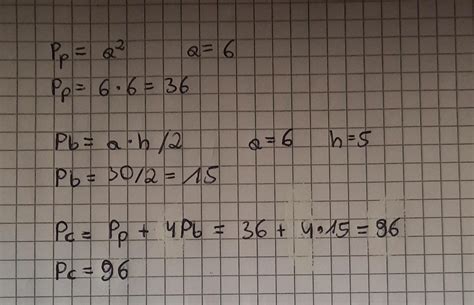 Pp = a² a = 6
Pp = 6 · 6 = 36
Pb = a · h /2 a = 6 h = 5
Pb = 30/2 = 15
Pc = Pp + 4Pb = 36 + 4 · 15 = 96
Pc = 96